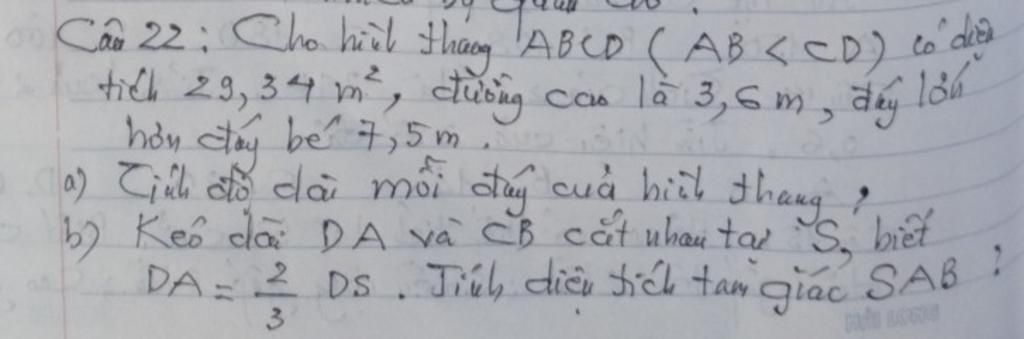 Câu 22: Cho hình thang ABCD (AB < CD) có diện
tích 29,34 m², đường cao là 3,6 m, đáy lớn
hơn đáy bé 7,5 m.
a) Tính độ dài mỗi đáy của hình thang?
b) Kéo dài DA và CB cắt nhau tại S, biết
DA = 2/3 DS. Tính diện tích tam giác SAB?